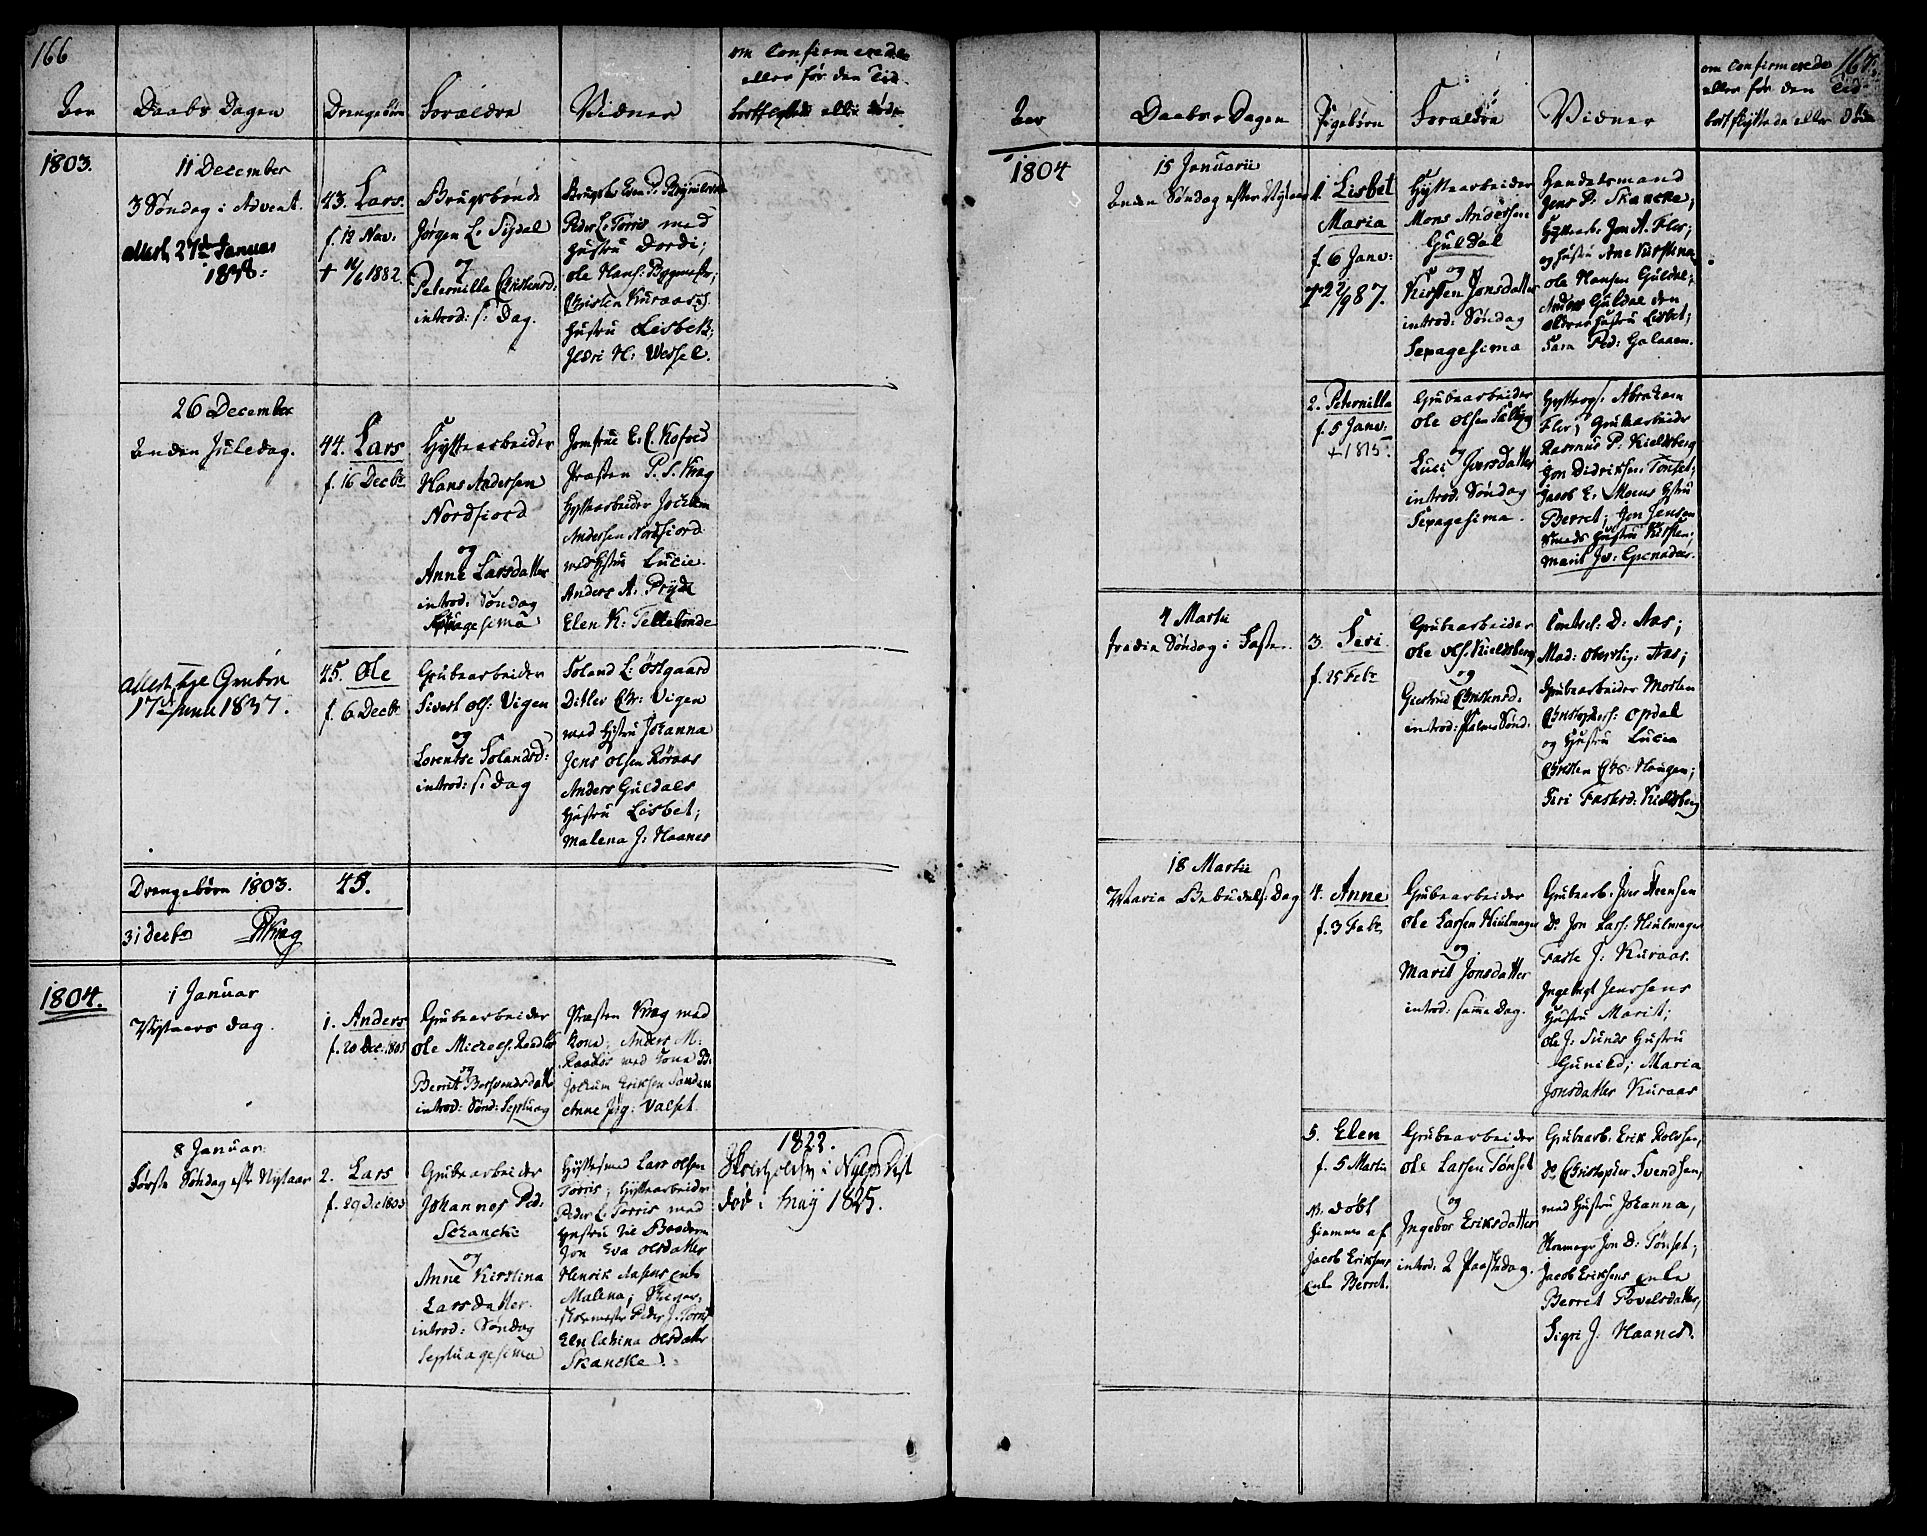 166
Aar
Daabs Dagen
Drengebørn
Forældre
Vidner
om Confirmerede
eller før den Tid
bortflyttede eller døde
1803.
11 December
3 Søndag i Advent.
attest, 27de Januar
1848:
43. Lars.
f. 12 Nov:
+ 1882.
Brugsbonde
Jørgen L: Sigdal
og
Peternilla Christensd:
introd: s: Dag.
Peder L: Torris med
Hustru Dordi;
Ole Hans: Bygmestr;
Christen Kuraas's
Hustru Lisbet;
Jldri H: Wessel.
26 December
Anden Juledag.
44. Lars
f. 16 Decbr
Hyttearbeider
Hans Andersen
Nordfiord
og
Anne Larsdatter
introd: Søndag
Septuagesima
Jomfrue E. C. Kofoed
Præsten P. S. Krag
Hyttearbeider Jochum
Andersen Nordfiord
med Hstru Lucie.
Anders A: Pryds
Elen K: Tellebonde
attest, 
17de Juni 1837.
45. Ole
f. 6 Decbr
Grubearbeider
Sivert Ols: Vigen
og
Lorentse Tolandsd:
introd: s: Dag
Toland L: Østgaard
Ditlev Chr: Vigen
med Hstru Johanna
Jens Olsen Røraas
Anders Guldals
Hustru Lisbet;
Malena J: Haanes
Drengebørn 1803. 45.
31 Decbr PKrag
1804.
1 Januar
Nytaars dag.
1. Anders
f. 20 Dec: 1803
Grubearbeider
Ole Michels:
og
Berrit Bersvendsdatter
introd: Sønd: Septuag
Præsten Krag med
Kone; Anders M:
med Kone B:
Jochum Eriksen Sanden
Anne Jng: Valset.
8 Januar.
Første Søndag eft. Nytaar
2. Lars
f. 29 De 1803
Grubearbeider
Johannes Ped:
Schancke
og
Anne Kirstina
Larsdatter.
introd: Søndag
Septuagesima
Hyttesmed Lars Olsen
Torris; Hyttearbeider
Peder L: Torris med
Hustru
Jon Eva Olsdatter
Henrik Aasens Enke
Malena;
Peder J. Torris
Elen Cathina Olsdatter
Skancke.
1822.
Skoleholder i
død i May 1825.
167
Aar
Daabs Dagen
Pigebørn
Forældre
Vidner
om Confirmerede
eller før den Tid
bortflyttede eller døde
1804
15 Januarii
Anden Søndag efter Nytaar
1. Lisbet
Maria
f. 6 Janv:
Hyttearbeider
Mons Andersen
Guldal
og
Kirsten Jonsdatter
introd: Søndag
Sexagesima
Handelsmand
Jens P. Skancke;
Hyttearb. Jon A. Flor;
og Hustru Ane Kirstina
Ole Hansen Guldal;
Anders Guldal den
Ældres Hustru Lisbet;
Sara Ped: Galaaen.
2. Peternilla
f. 5 Janv:
+ 1815.
Grubearbeider
Ole Olsen
og
Luci Jversdatter
introd: Søndag
Sexagesima.
Abraham
Flor; Grubearbeider
Rasmus P: Kieldsberg
Jon Didriksen Tønset;
Jacob E: Hstru
Berret; Jon Jensen
Smeds Hustru Kirsten;
Marit Jv:
4 Martii
Tredie Søndag i Faste.
3. Seri
f. 25 Febr
Grubearbeider
Ole Ols. Kieldsberg
og
Giertrud Christensd.
introd: Palme Sønd:
D: Aas;
Mad: Aas;
Grubearbeider Morten
Christophers: Opdal
og Hustru Lucia
Christen Chr: Haugen;
Siri Fastesd: Kieldsberg
18 Martii
Maria Bebudels: Dag
4. Anne
f. 3 Febr
Grubearbeider
Ole Larsen Hiulmager
og
Marit Jonsdatter
introd: samme Dag.
Grubearb: Jver Steensen
Do Jon Lars: Hiulmager
Faste J: Kuraas.
Ingebrigt Jenssens
Hustru Marit;
Ole J: Sunds Hustru
Gunild; Maria
Jonsdatter Kuraas
5. Elen
f. 5 Martii
N. døbt
hiemme af
Jacob Eriksens
Enke Berret.
Grubearbeider
Ole Larsen Tønset
og
Ingebor Eriksdatter
introd: 2 Paaskedag.
Grubearb. Erik Rolvsen,
Do Christopher Svendsen,
med Hustru Johanna,
Skomager Jon D: Tønset;
Jacob Eriksens Enke
Berret Povelsdatter,
Sigri J: Haanes.